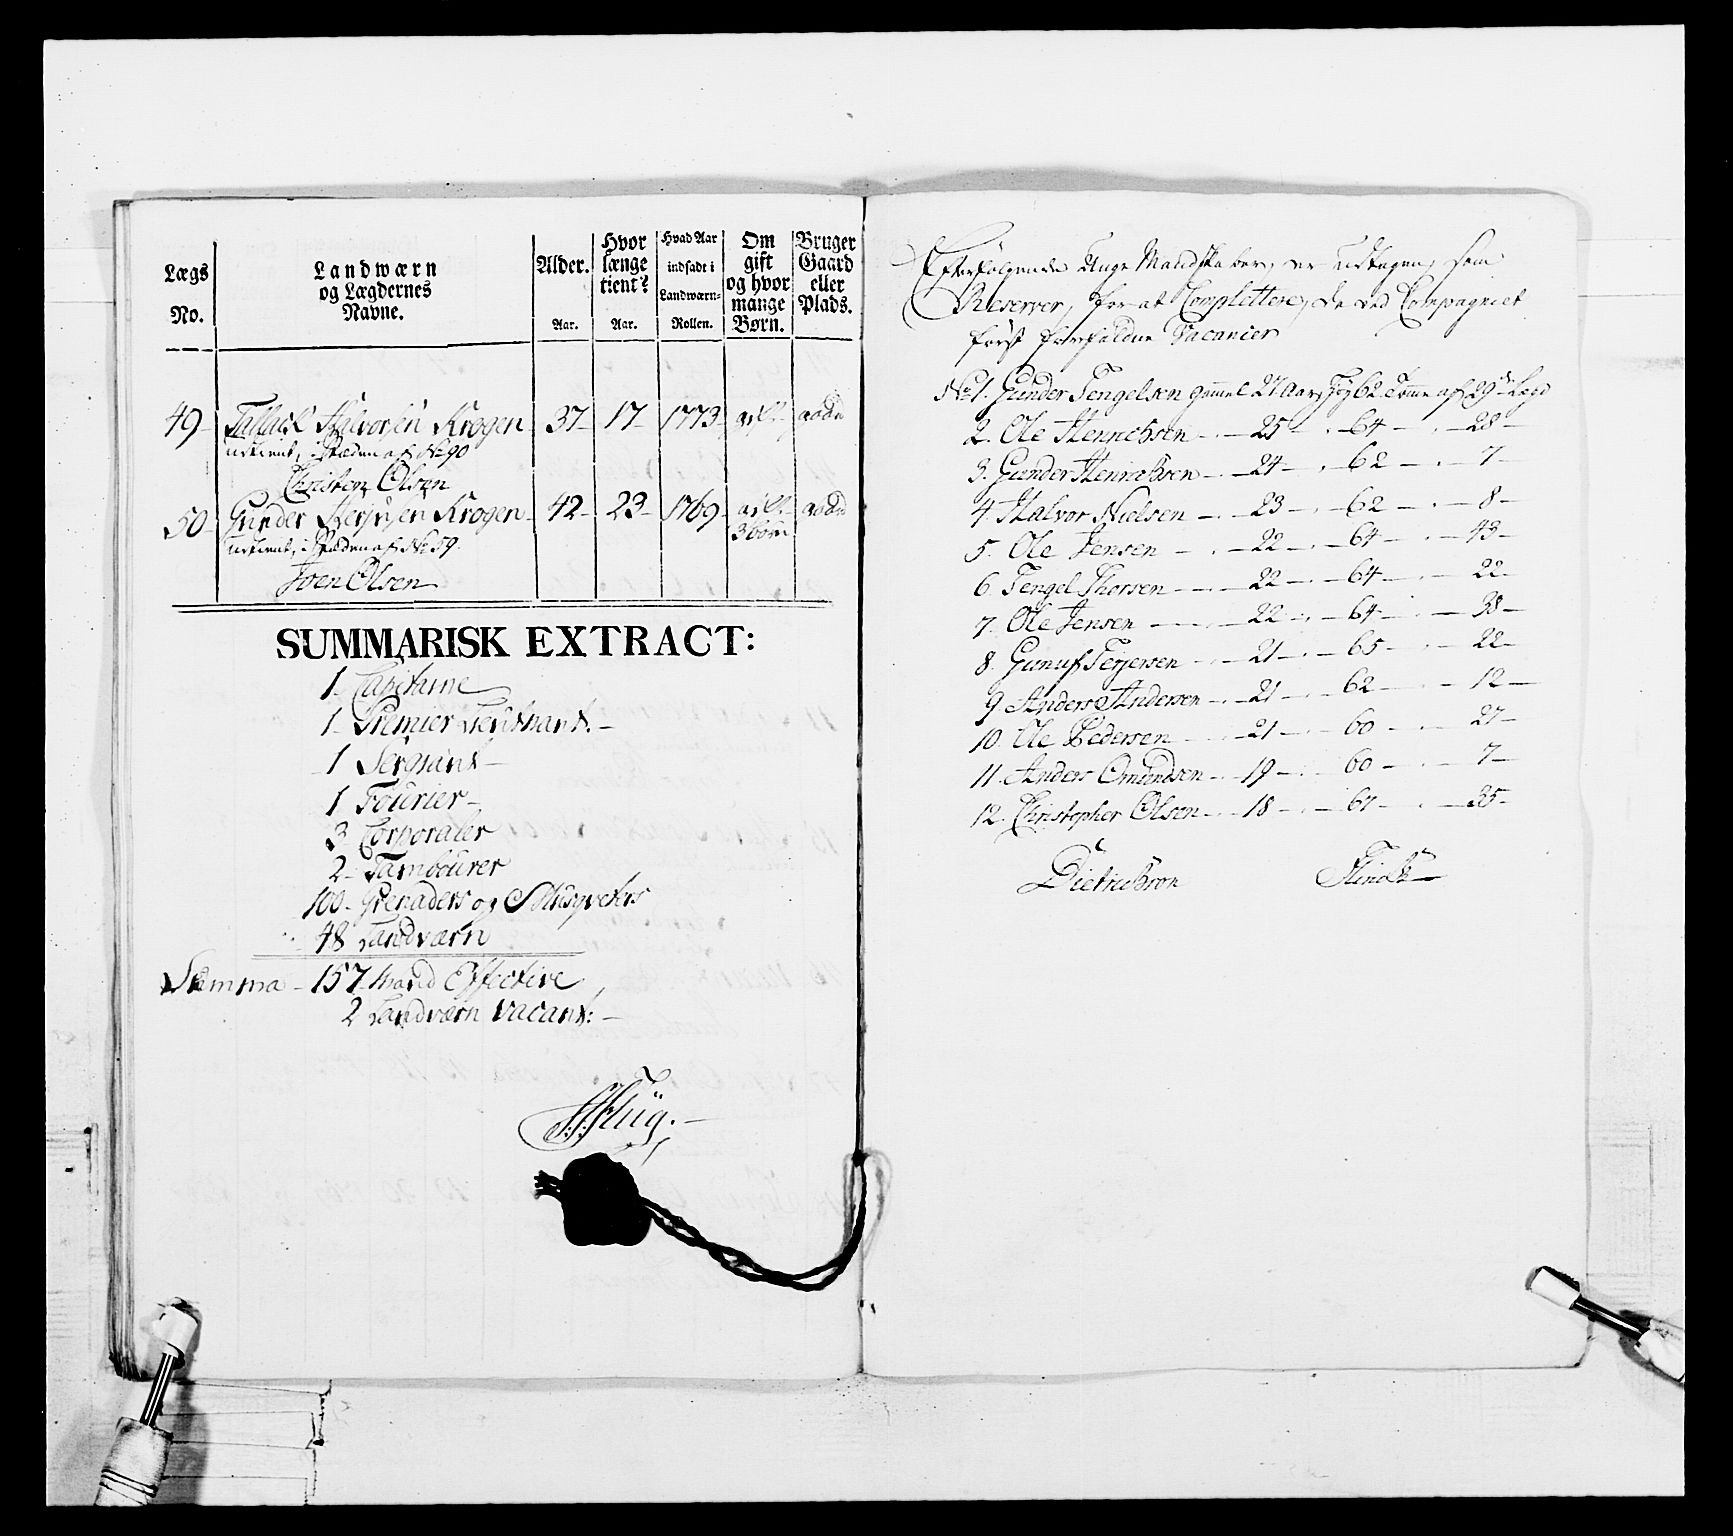 Lægs No. | Landwærn og Lægdernes Navne. | Alder. Aar. | Hvor længe tient? Aar. | Hvad Aar indsadt i Landwærn-Rollen. | Om gift og hvor mange Børn. | Bruger Gaard eller Plads.
49 Tallack Halvorsen Krogen 37 17 1773 gift
udtient, i Stæden af No 90
Christen Olsen
50 Gunder Terjusen Krogen 42 23 1769 gift
udtient, i Stæden af No 59 3 børn
Joen Olsen
SUMMARISK EXTRACT:
1 Capitaine
1 Premier Lieutnant
1 Sergiant
1 Fourier
3 Corporaler
2 Tambourer
100 Grenaders og Musqveters
48 Landværn
Summa 157 Mand Effective
2 Landværn vacant:
Flüg.
Efterfølgende Unge Mandskaber, er udtagen, som
Reserver, for at Complettere, de ved Compagniet
først forefaldne Vacancer
No 1. Gunder Tengelsen gammel 27 Aar, høy 62 Tomme af 29de Lægd
2. Ole Henrichsen 25 64 28
3. Gunder Henrichsen 24 62 7
4 Halvor Nielsen 23 62 8
5. Ole Jensen 22 64 43
6 Tengel Thorsen 22 64 22
7. Ole Jensen 22 64 38
8. Gunuf Terjersen 21 65 22
9 Anders Andersen 21 62 12
10. Ole Pedersen 21 60 27
11. Anders Omundsen 19 60 7
12. Christopher Olsen 18 67 35
Dietrichson